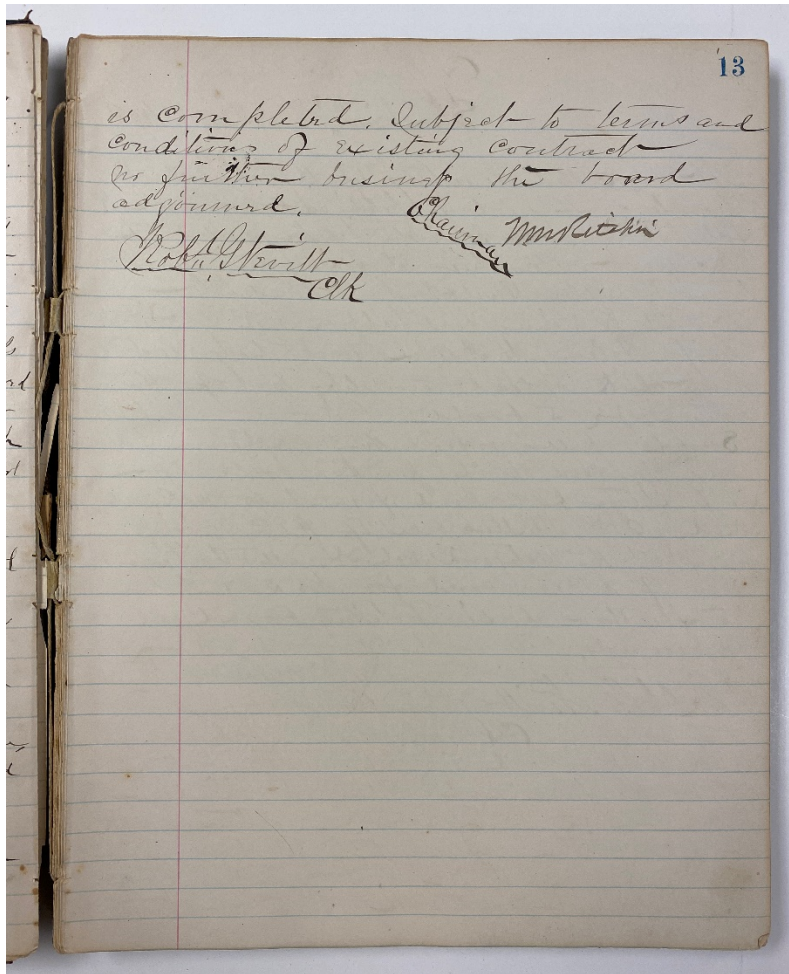 13
is completed. Subject to terms and
conditions of existing contract
no further business the board
adjourned.
Chairman Wm Ritchie
Robt Stevitt
Clk